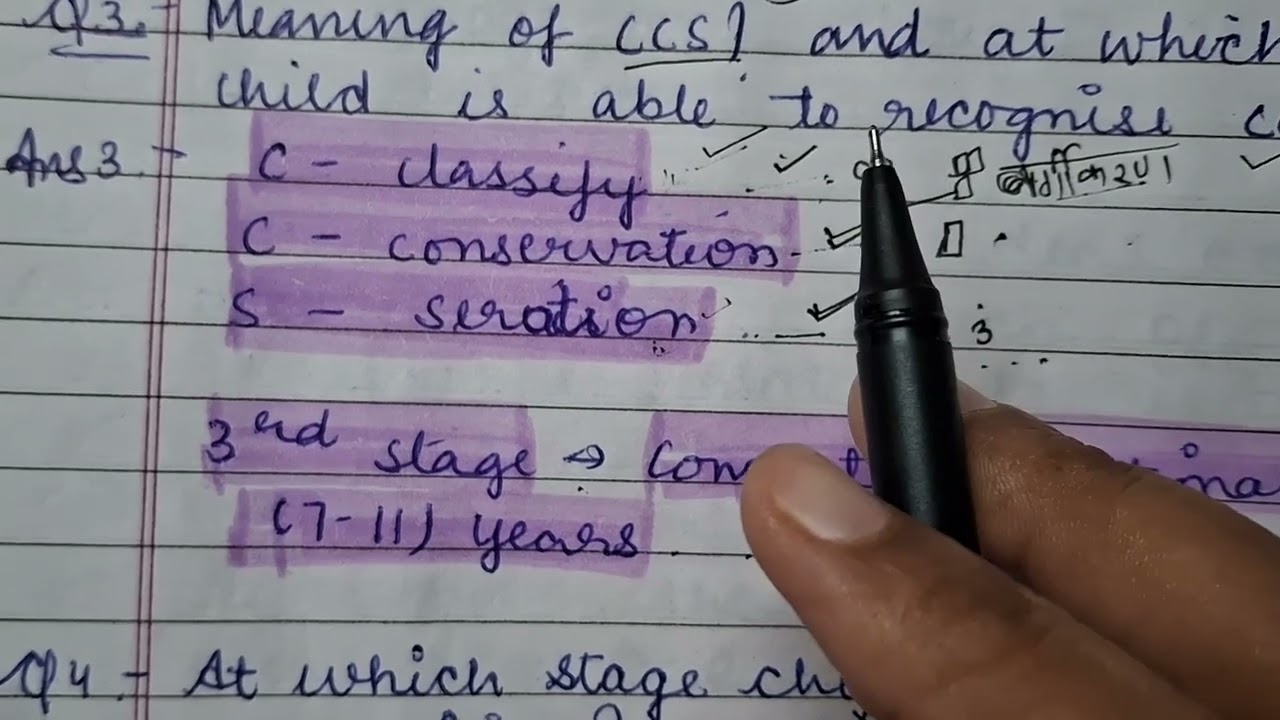 Q3. - Meaning of CCS) and at which
child is able to recognise
Ans3. - C - classify
वर्गीकरण।
C - conservation
S - seration
3
3rd stage →
(7-11) years
Q4 - At which stage